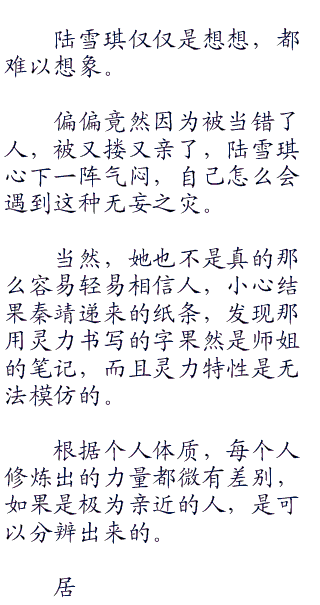 陆雪琪仅仅是想想，都
难以想象。
偏偏竟然因为被当错了
人，被又搂又亲了，陆雪琪
心下一阵气闷，自己怎么会
遇到这种无妄之灾。
当然，她也不是真的那
么容易轻易相信人，小心结
果秦靖递来的纸条，发现那
用灵力书写的字果然是师姐
的笔记，而且灵力特性是无
法模仿的。
根据个人体质，每个人
修炼出的力量都微有差别，
如果是极为亲近的人，是可
以分辨出来的。
居